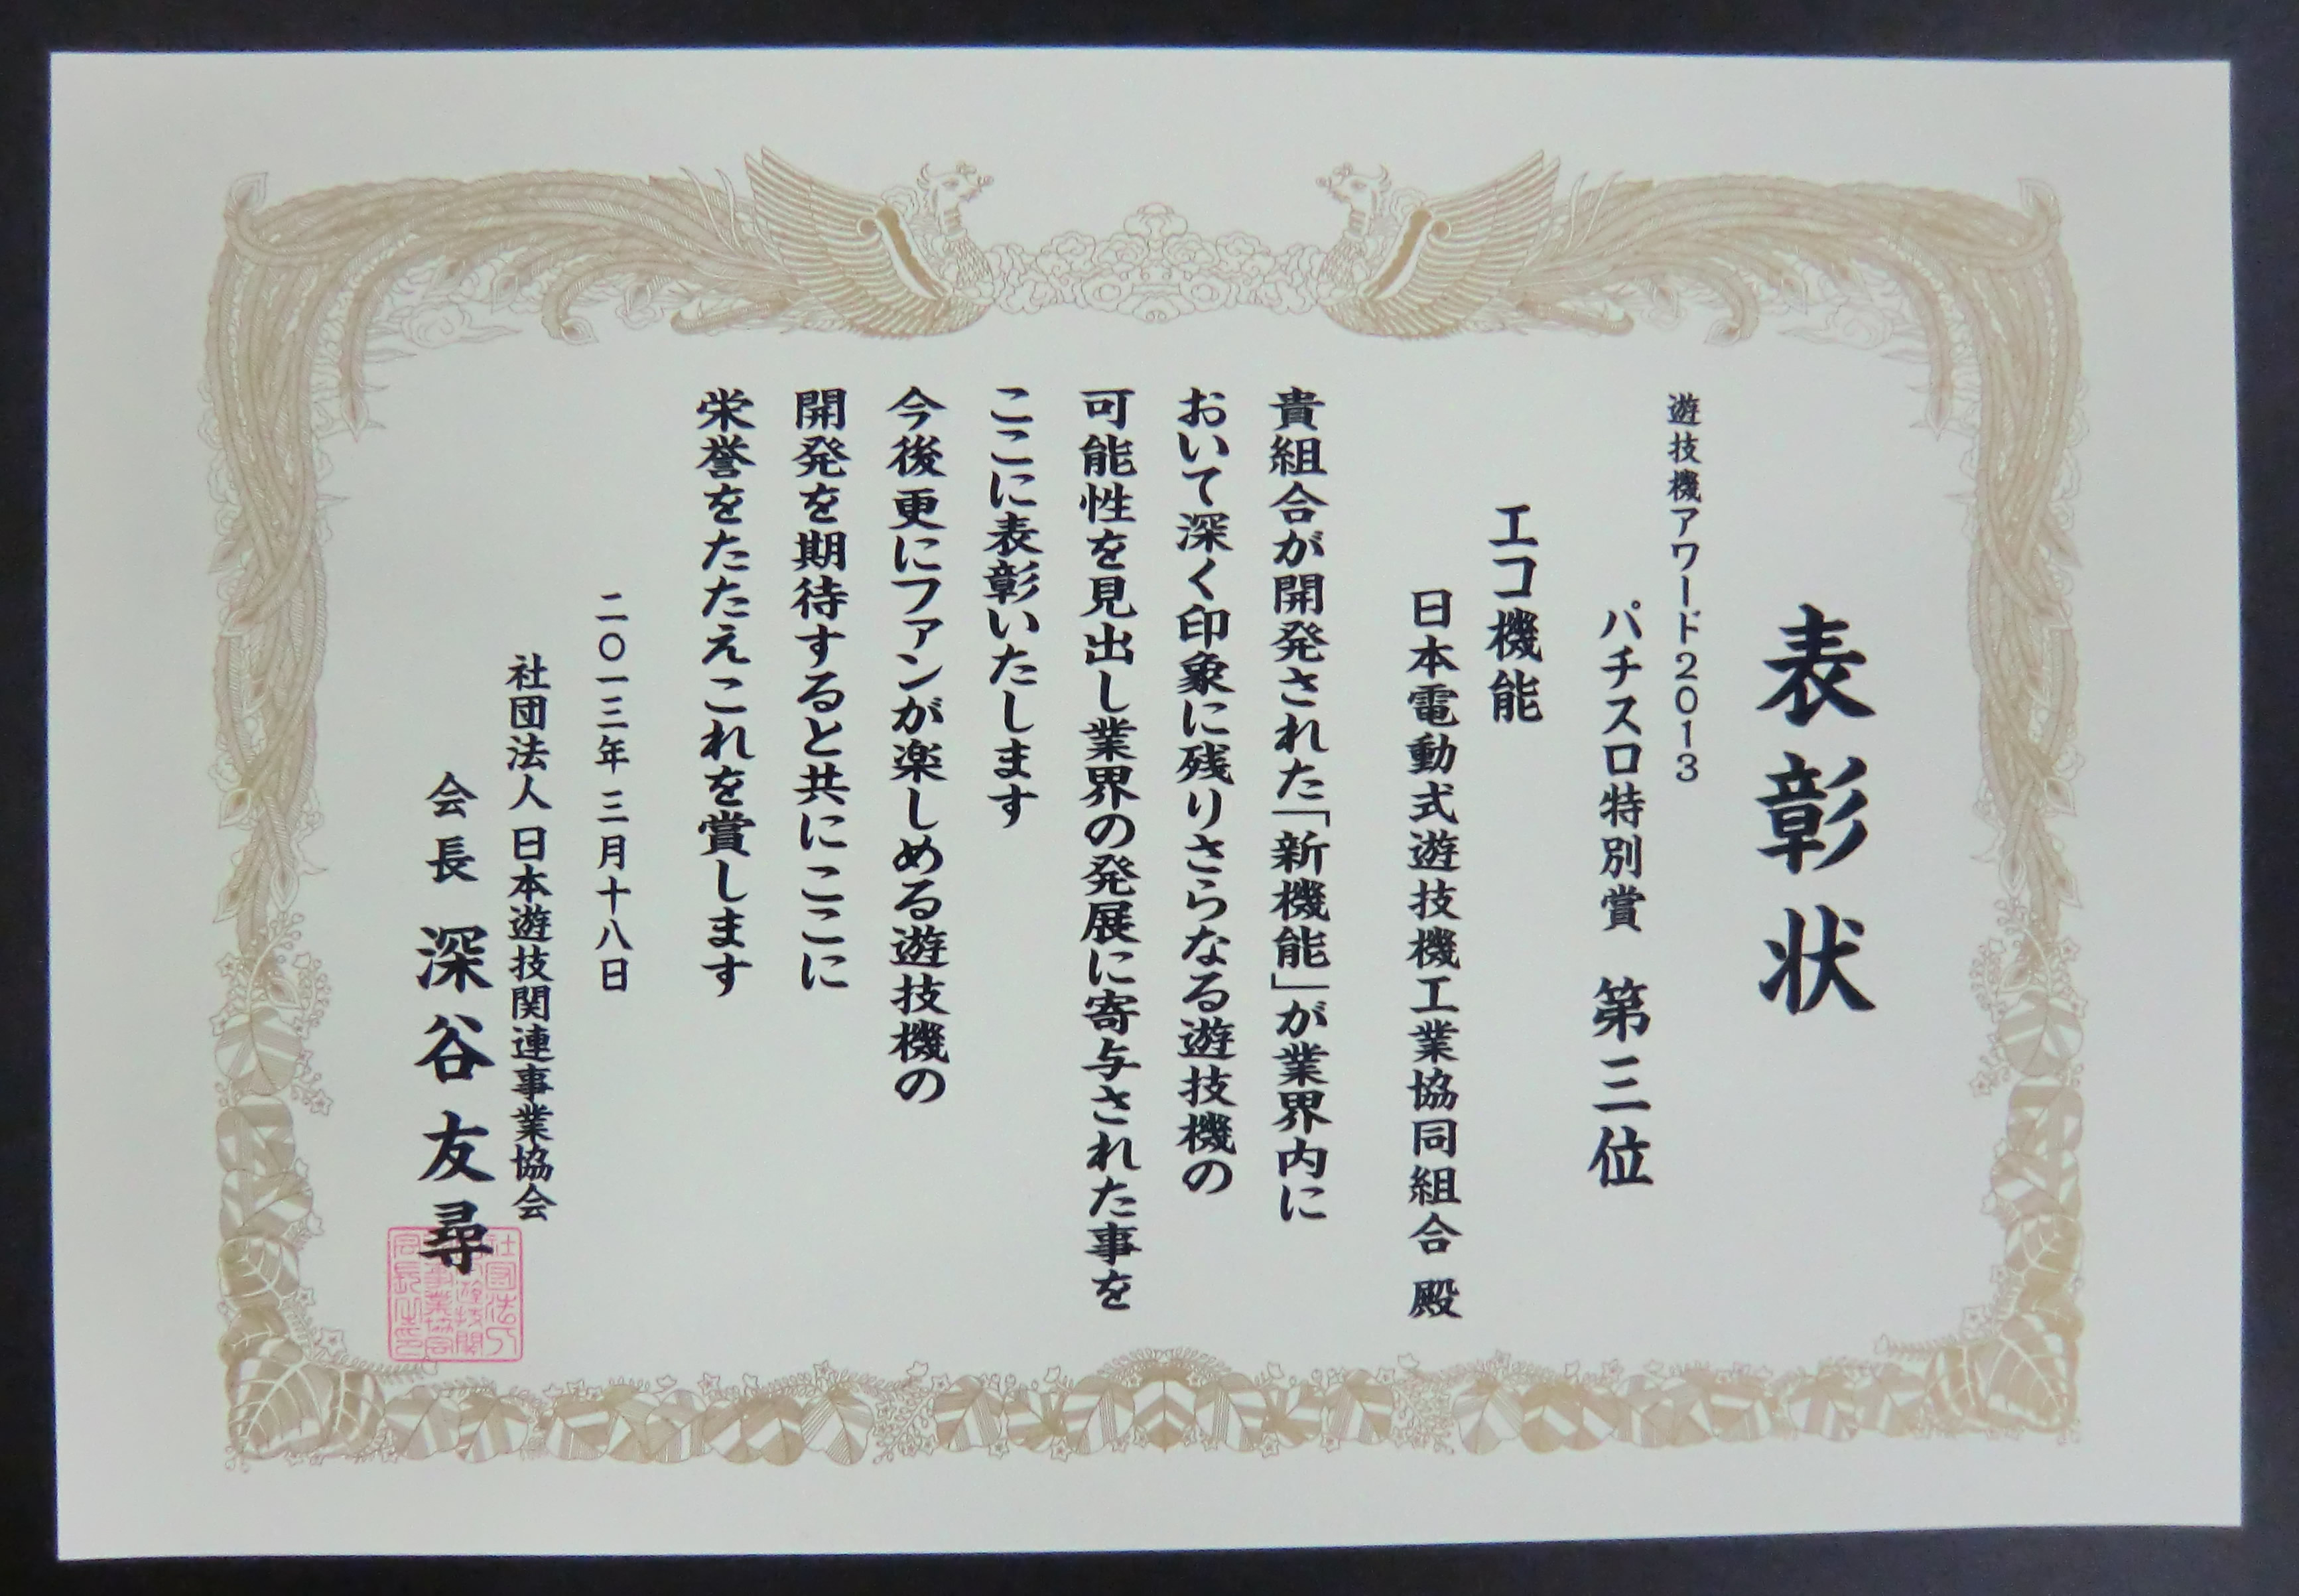 表彰状
遊技機アワード2013
パチスロ特別賞 第三位
エコ機能
日本電動式遊技機工業協同組合 殿
貴組合が開発された「新機能」が業界内に
おいて深く印象に残りさらなる遊技機の
可能性を見出し業界の発展に寄与された事を
ここに表彰いたします
今後更にファンが楽しめる遊技機の
開発を期待すると共にここに
栄誉をたたえこれを賞します
二〇一三年 三月十八日
社団法人 日本遊技関連事業協会
会長 深谷友尋